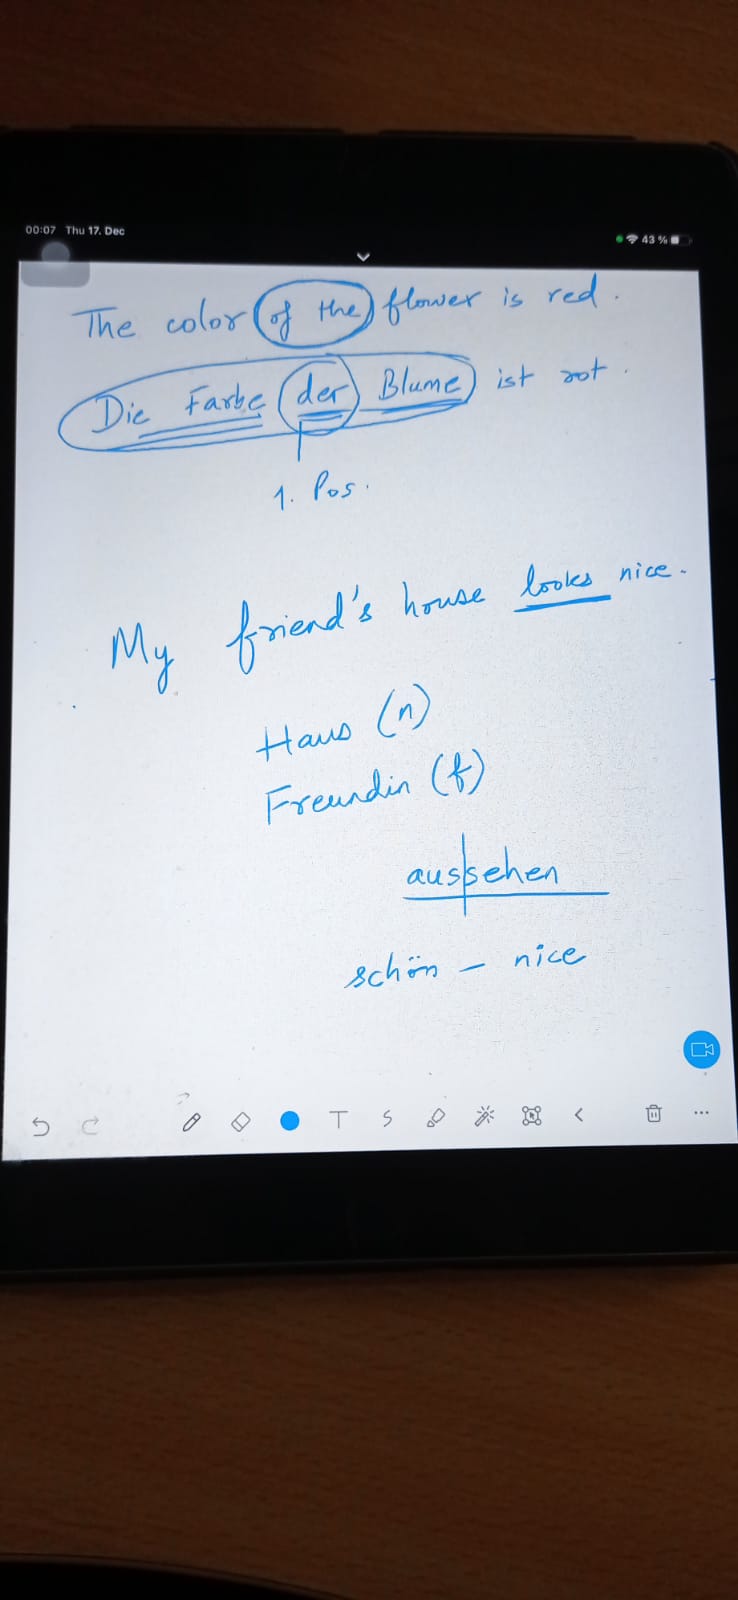 00:07 Thu 17. Dec
43 %
The color of the flower is red.
Die Farbe der Blume ist rot.
1. Pos.
My friend's house looks nice.
Haus (n)
Freundin (f)
aus|sehen
schön - nice
T S